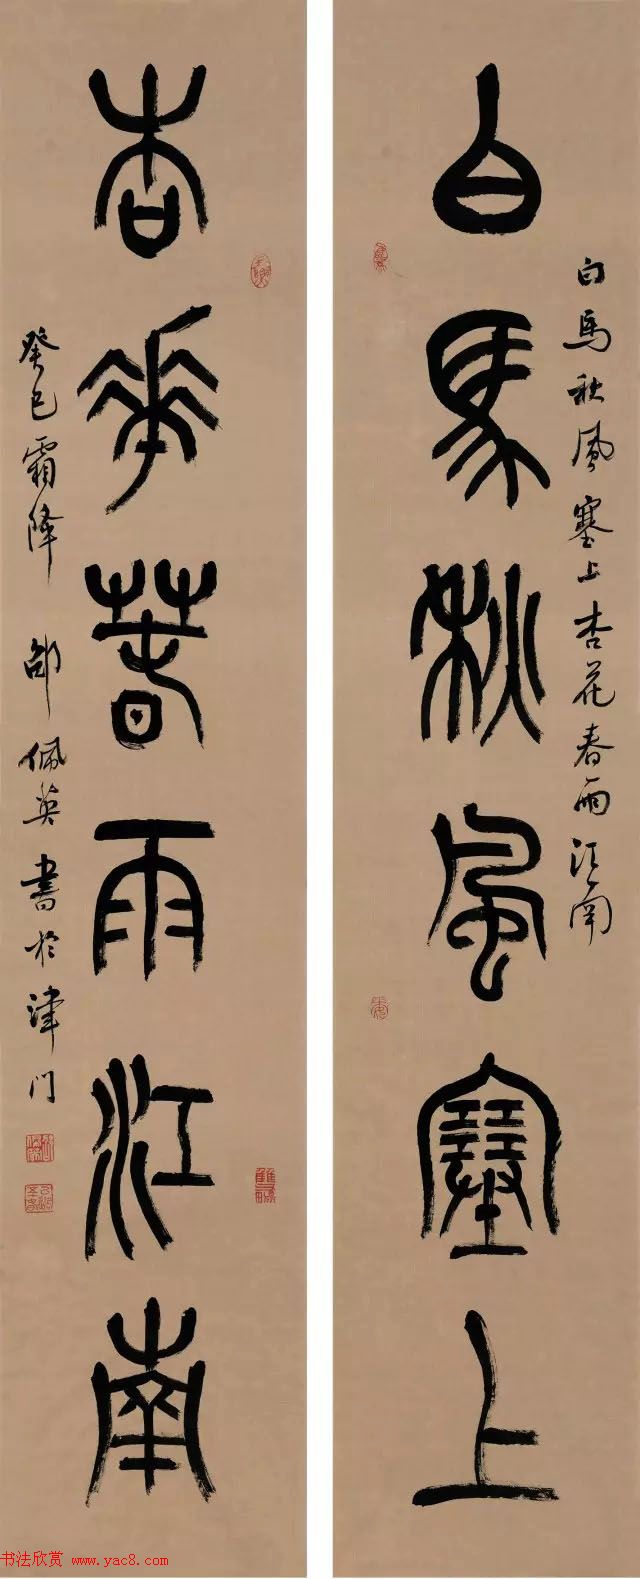 白馬秋風塞上
白馬秋風塞上杏花春雨江南
杏華萅雨江南
癸巳霜降 邵佩英書於津門
书法欣赏 www.yac8.com